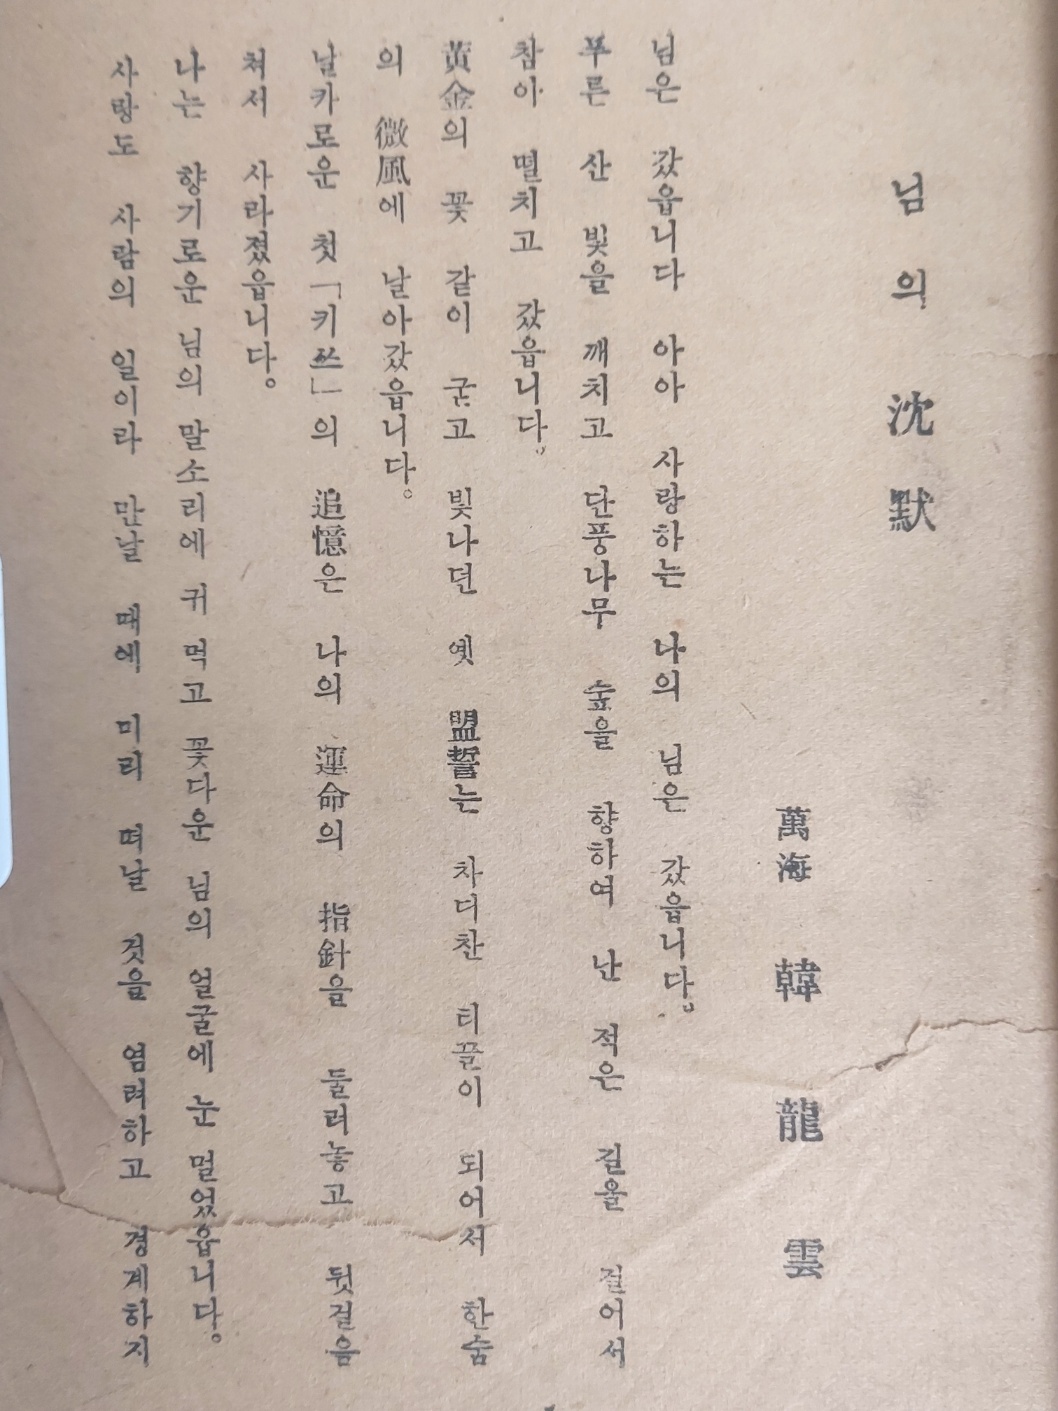 님의 沈默
萬海 韓龍雲
님은 갔읍니다 아아 사랑하는 나의 님은 갔읍니다。
푸른 산 빛을 깨치고 단풍나무 숲을 향하여 난 적은 길을 걸어서
참아 떨치고 갔읍니다。
黃金의 꽃 같이 굳고 빛나던 옛 盟誓는 차디찬 티끌이 되어서 한숨
의 微風에 날아갔읍니다。
날카로운 첫「키쓰」의 追憶은 나의 運命의 指針을 둘러놓고 뒷걸음
쳐서 사라졌읍니다。
나는 향기로운 님의 말소리에 귀 먹고 꽃다운 님의 얼굴에 눈 멀었읍니다。
사랑도 사람의 일이라 만날 때에 미리 떠날 것을 염려하고 경계하지